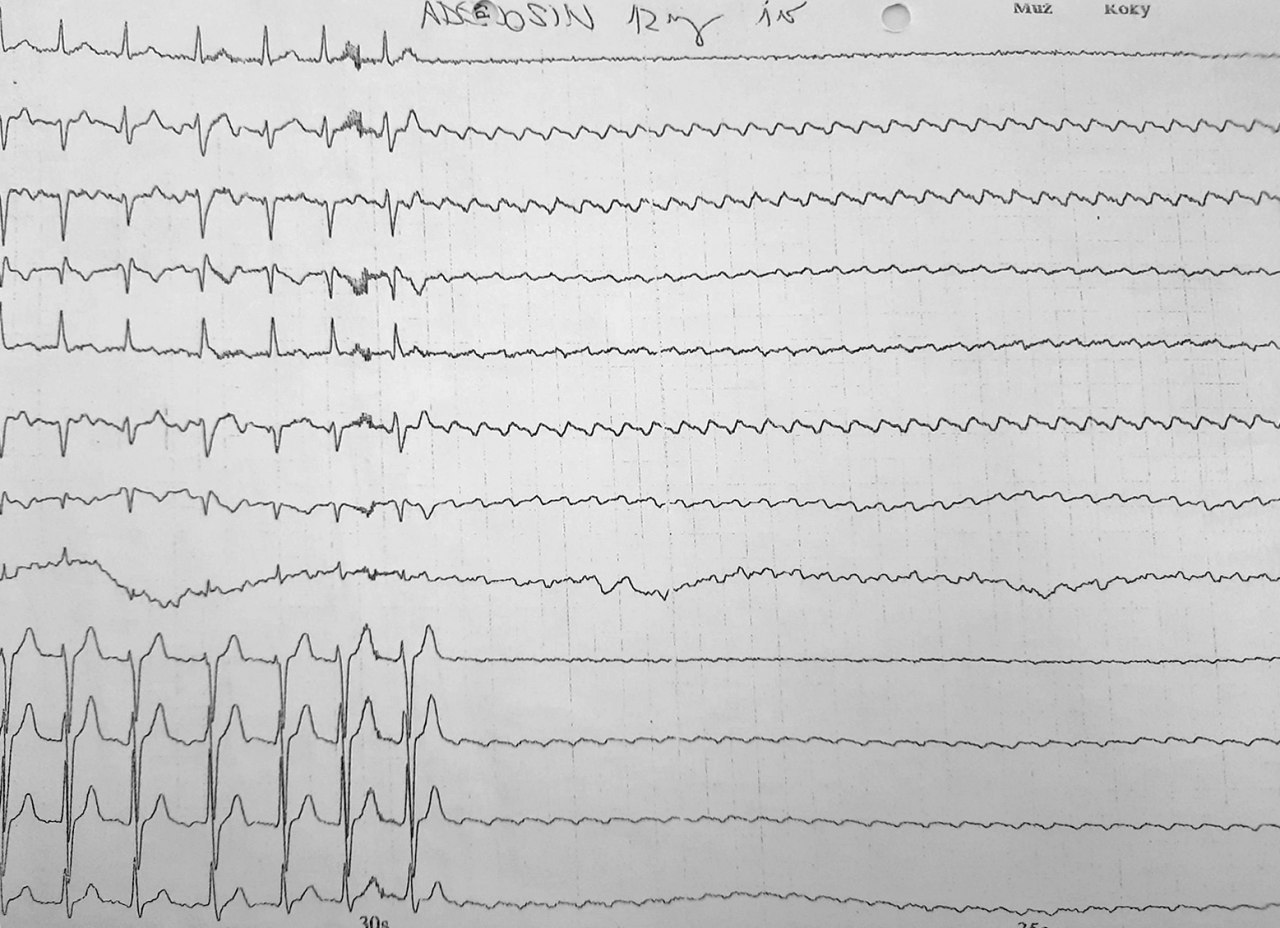 ADENOSIN 12 mg iv Muž Roky
30s